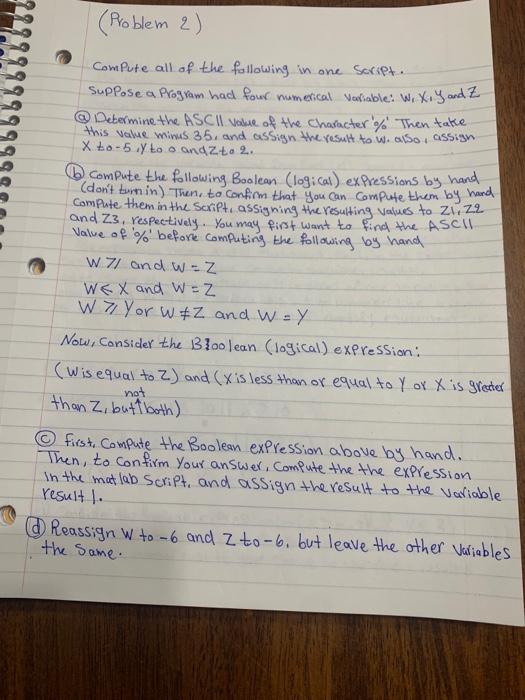 (Problem 2)
Compute all of the following in one Script.
Suppose a Program had four numerical variable: W, X, Y and Z
ⓐ Determine the ASCII value of the character '%' Then take
this value minus 35, and assign the result to w. also, assign
X to -5, Y to 0 and Z to 2.
ⓑ Compute the following Boolean (logical) expressions by hand
(don't turn in) Then, to confirm that you can Compute them by hand
Compute them in the Script, assigning the resulting values to Z1, Z2
and Z3, respectively. You may first want to find the ASCII
Value of '%' before computing the following by hand
W ⩾ 1 and W = Z
W ⩽ X and W = Z
W ⩾ Y or W ≠ Z and W = Y
Now, Consider the Bloolean (logical) expression:
(W is equal to Z) and (X is less than or equal to Y or X is greater
than Z, but not both)
ⓒ first, Compute the Boolean expression above by hand.
Then, to confirm your answer, Compute the the expression
in the matlab script, and assign the result to the variable
result 1.
ⓓ Reassign W to -6 and Z to -6, but leave the other variables
the Same.